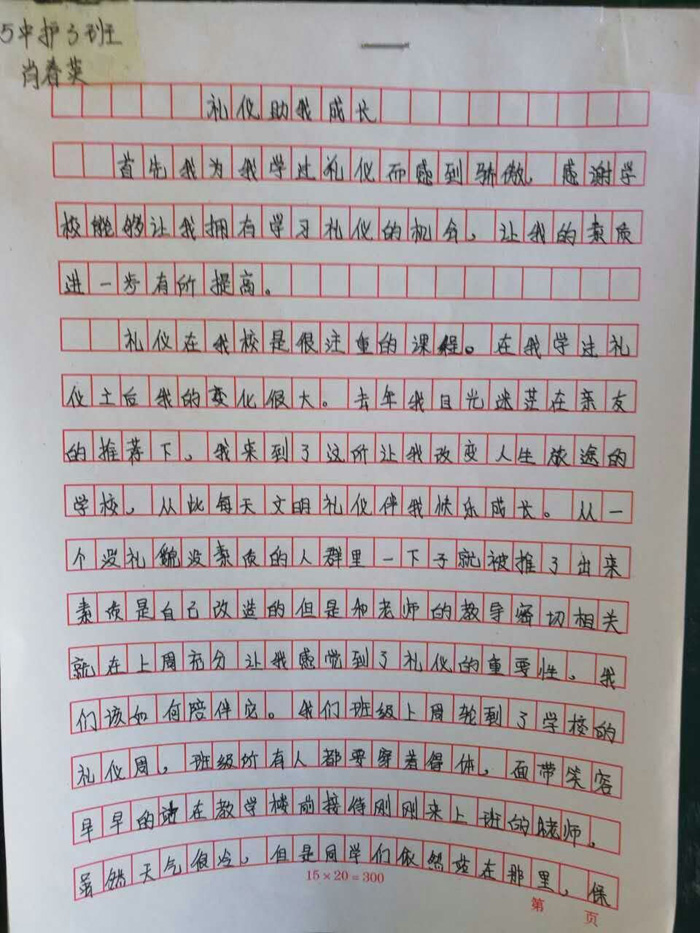 5中护3班
肖春英
礼仪助我成长
首先我为我学过礼仪而感到骄傲，感谢学
校能够让我拥有学习礼仪的机会，让我的素质
进一步有所提高。
礼仪在我校是很注重的课程。在我学过礼
仪土后我的变化很大。去年我目光迷茫在亲友
的推荐下，我来到了这所让我改变人生旅途的
学校，从此每天文明礼仪伴我快乐成长。从一
个没礼貌没素质的人群里一下子就被推了出来
素质是自己改造的但是和老师的教导密切相关
就在上周充分让我感觉到了礼仪的重要性，我
们该如何陪伴它。我们班级上周轮到了学校的
礼仪周，班级所有人都要穿着得体，面带笑容
早早的站在教学楼前接待刚刚来上班的老师，
虽然天气很冷，但是同学们依然站在那里，保
15×20=300
第 页